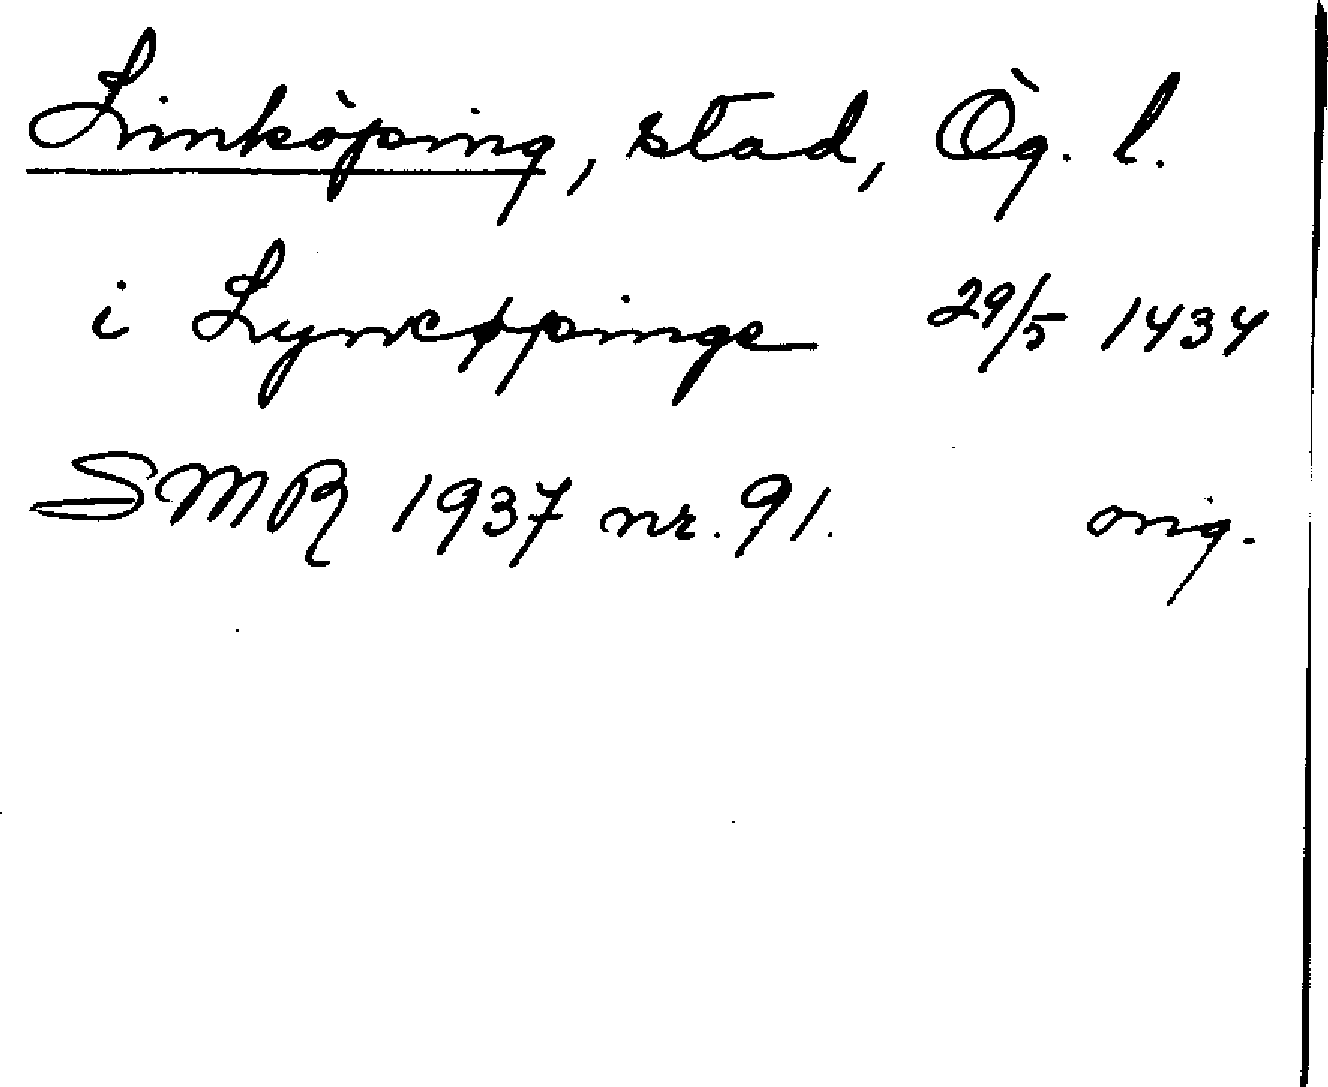 Linköping, stad, Ög. l.
i Lyncøpinge 29/5 1434
SMR 1937 nr. 91. orig.